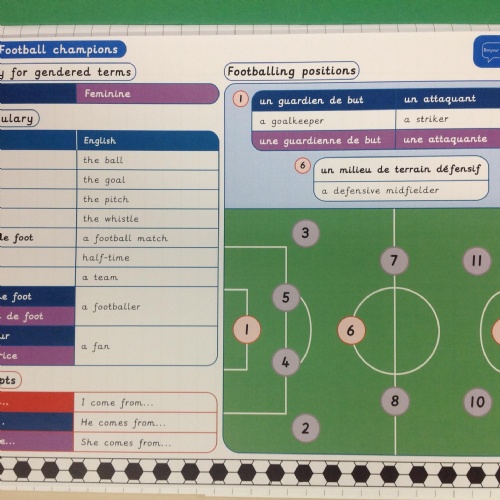 Football champions
y for gendered terms
Feminine
ulary
English
the ball
the goal
the pitch
the whistle
de foot
a football match
half-time
a team
e foot
de foot
a footballer
ur
rice
a fan
pts
...
I come from...
.
He comes from...
e...
She comes from...
Footballing positions
1
un guardien de but
un attaquant
a goalkeeper
a striker
une guardienne de but
une attaquante
6
un milieu de terrain défensif
a defensive midfielder
3
7
11
5
1
6
4
8
10
2